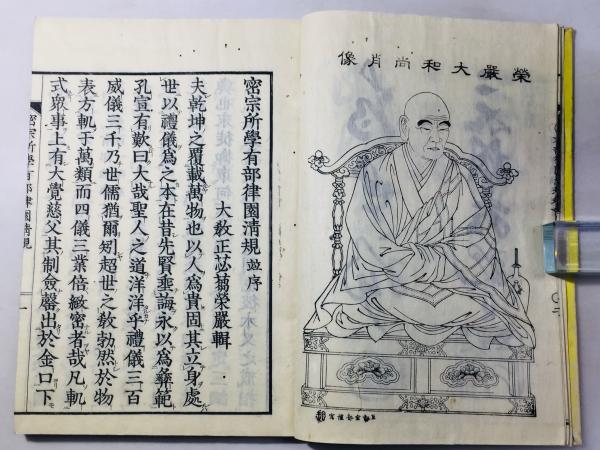 榮嚴大和尚肖像
密宗所學有部律園清規並序
大敎正苾蒭榮嚴輯
夫乾坤之覆載萬物也以人為貴固其立身處
世以禮儀為之本在昔先賢埀誨永以為彝範
孔宣有歎曰大哉聖人之道洋洋乎禮儀三百
威儀三千乃世儒猶爾矧超世之敎勃然於物
表方軌于萬類而四儀三業倍緻密者哉凡軌
式眾事上有大覺慈父其制僉罄出於金口下
密宗所學有部律園清規
一